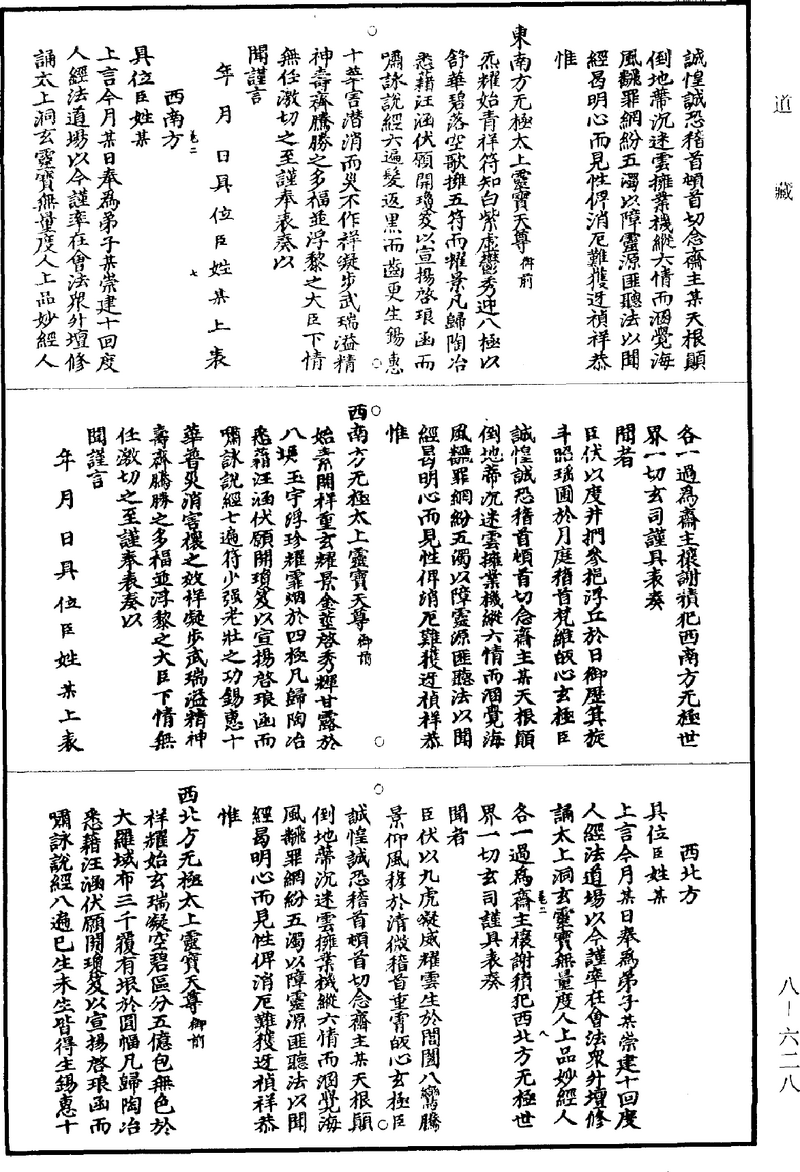 道藏
誠惶誠恐稽首頓首切念齋主某天根顛
倒地蒂沉迷雲擁業機縱六情而涸覺海
風飜罪網紛五濁以障靈源匪聽法以聞
經曷明心而見性俾消厄難獲迓禎祥恭
惟
東南方无極太上靈寶天尊御前
炁耀始青祥符知白紫虛鬱秀迎八極以
舒華碧落空歌擁五符而耀景凡歸陶冶
悉藉汪涵伏願開瓊笈以宣揚啓琅函而
嘯詠說經六遍髮返黑而齒更生錫惠
十華害潛消而災不作祥凝步武瑞溢精
神壽齊騰勝之多福並浮黎之大臣下情
無任激切之至謹奉表奏以
聞謹言
年月日具位臣姓某上表
卷二
七
西南方
具位臣姓某
上言今月某日奉為弟子某崇建十回度
人經法道場以今謹率在會法眾升壇修
誦太上洞玄靈寶無量度人上品妙經人
各一過為齋主禳謝積犯西南方无極世
界一切玄司謹具表奏
聞者
臣伏以度井捫參挹浮丘於日御歷箕旋
斗昭瑤圃於月庭稽首梵維皈心玄極臣
誠惶誠恐稽首頓首切念齋主某天根顛
倒地蒂沉迷雲擁業機縱六情而涸覺海
風飜罪網紛五濁以障靈源匪聽法以聞
經曷明心而見性俾消厄難獲迓禎祥恭
惟
西南方无極太上靈寶天尊御前
始素開祥重玄耀景金蓝啓秀輝甘露於
八埛玉宇浮珍耀霏烟於四極凡歸陶冶
悉藉汪涵伏願開瓊笈以宣揚啓琅函而
嘯詠說經七遍符少强老壯之功錫惠十
華普災消害禳之效祥凝步武瑞溢精神
壽齊騰勝之多福並浮黎之大臣下情無
任激切之至謹奉表奏以
聞謹言
年月日具位臣姓某上表
西北方
具位臣姓某
上言今月某日奉為弟子某崇建十回度
人經法道場以今謹率在會法眾升壇修
誦太上洞玄靈寶無量度人上品妙經人
卷二
八
各一過為齋主禳謝積犯西北方无極世
界一切玄司謹具表奏
聞者
臣伏以九虎凝威耀雲生於閶闔八鸞騰
景仰風穆於清微稽首重霄皈心玄極臣
誠惶誠恐稽首頓首切念齋主某天根顛
倒地蒂沉迷雲擁業機縱六情而涸覺海
風飜罪網紛五濁以障靈源匪聽法以聞
經曷明心而見性俾消厄難獲迓禎祥恭
惟
西北方无極太上靈寶天尊御前
祥耀始玄瑞凝空碧區分五億包無色於
大羅域布三千覆有垠於圓幅凡歸陶冶
悉藉汪涵伏願開瓊笈以宣揚啓琅函而
嘯詠說經八遍已生未生皆得生錫惠十
八-六二八